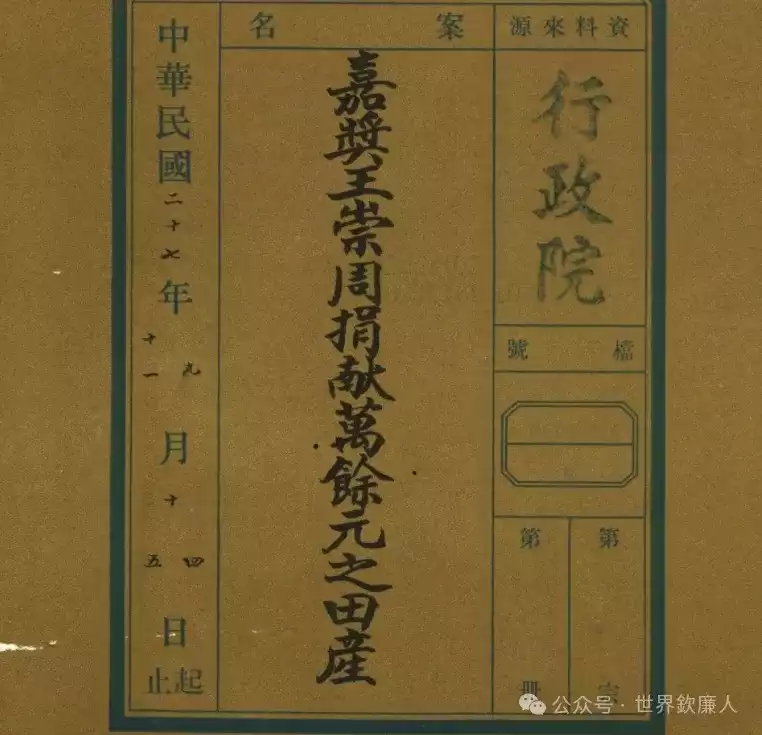 資料來源
行政院
檔號
第宗
第冊
案名
嘉獎王崇周捐献萬餘元之田產
中華民國二十七年
九
十一
月
十
四
五
日
起止
公众号 · 世界欽廉人